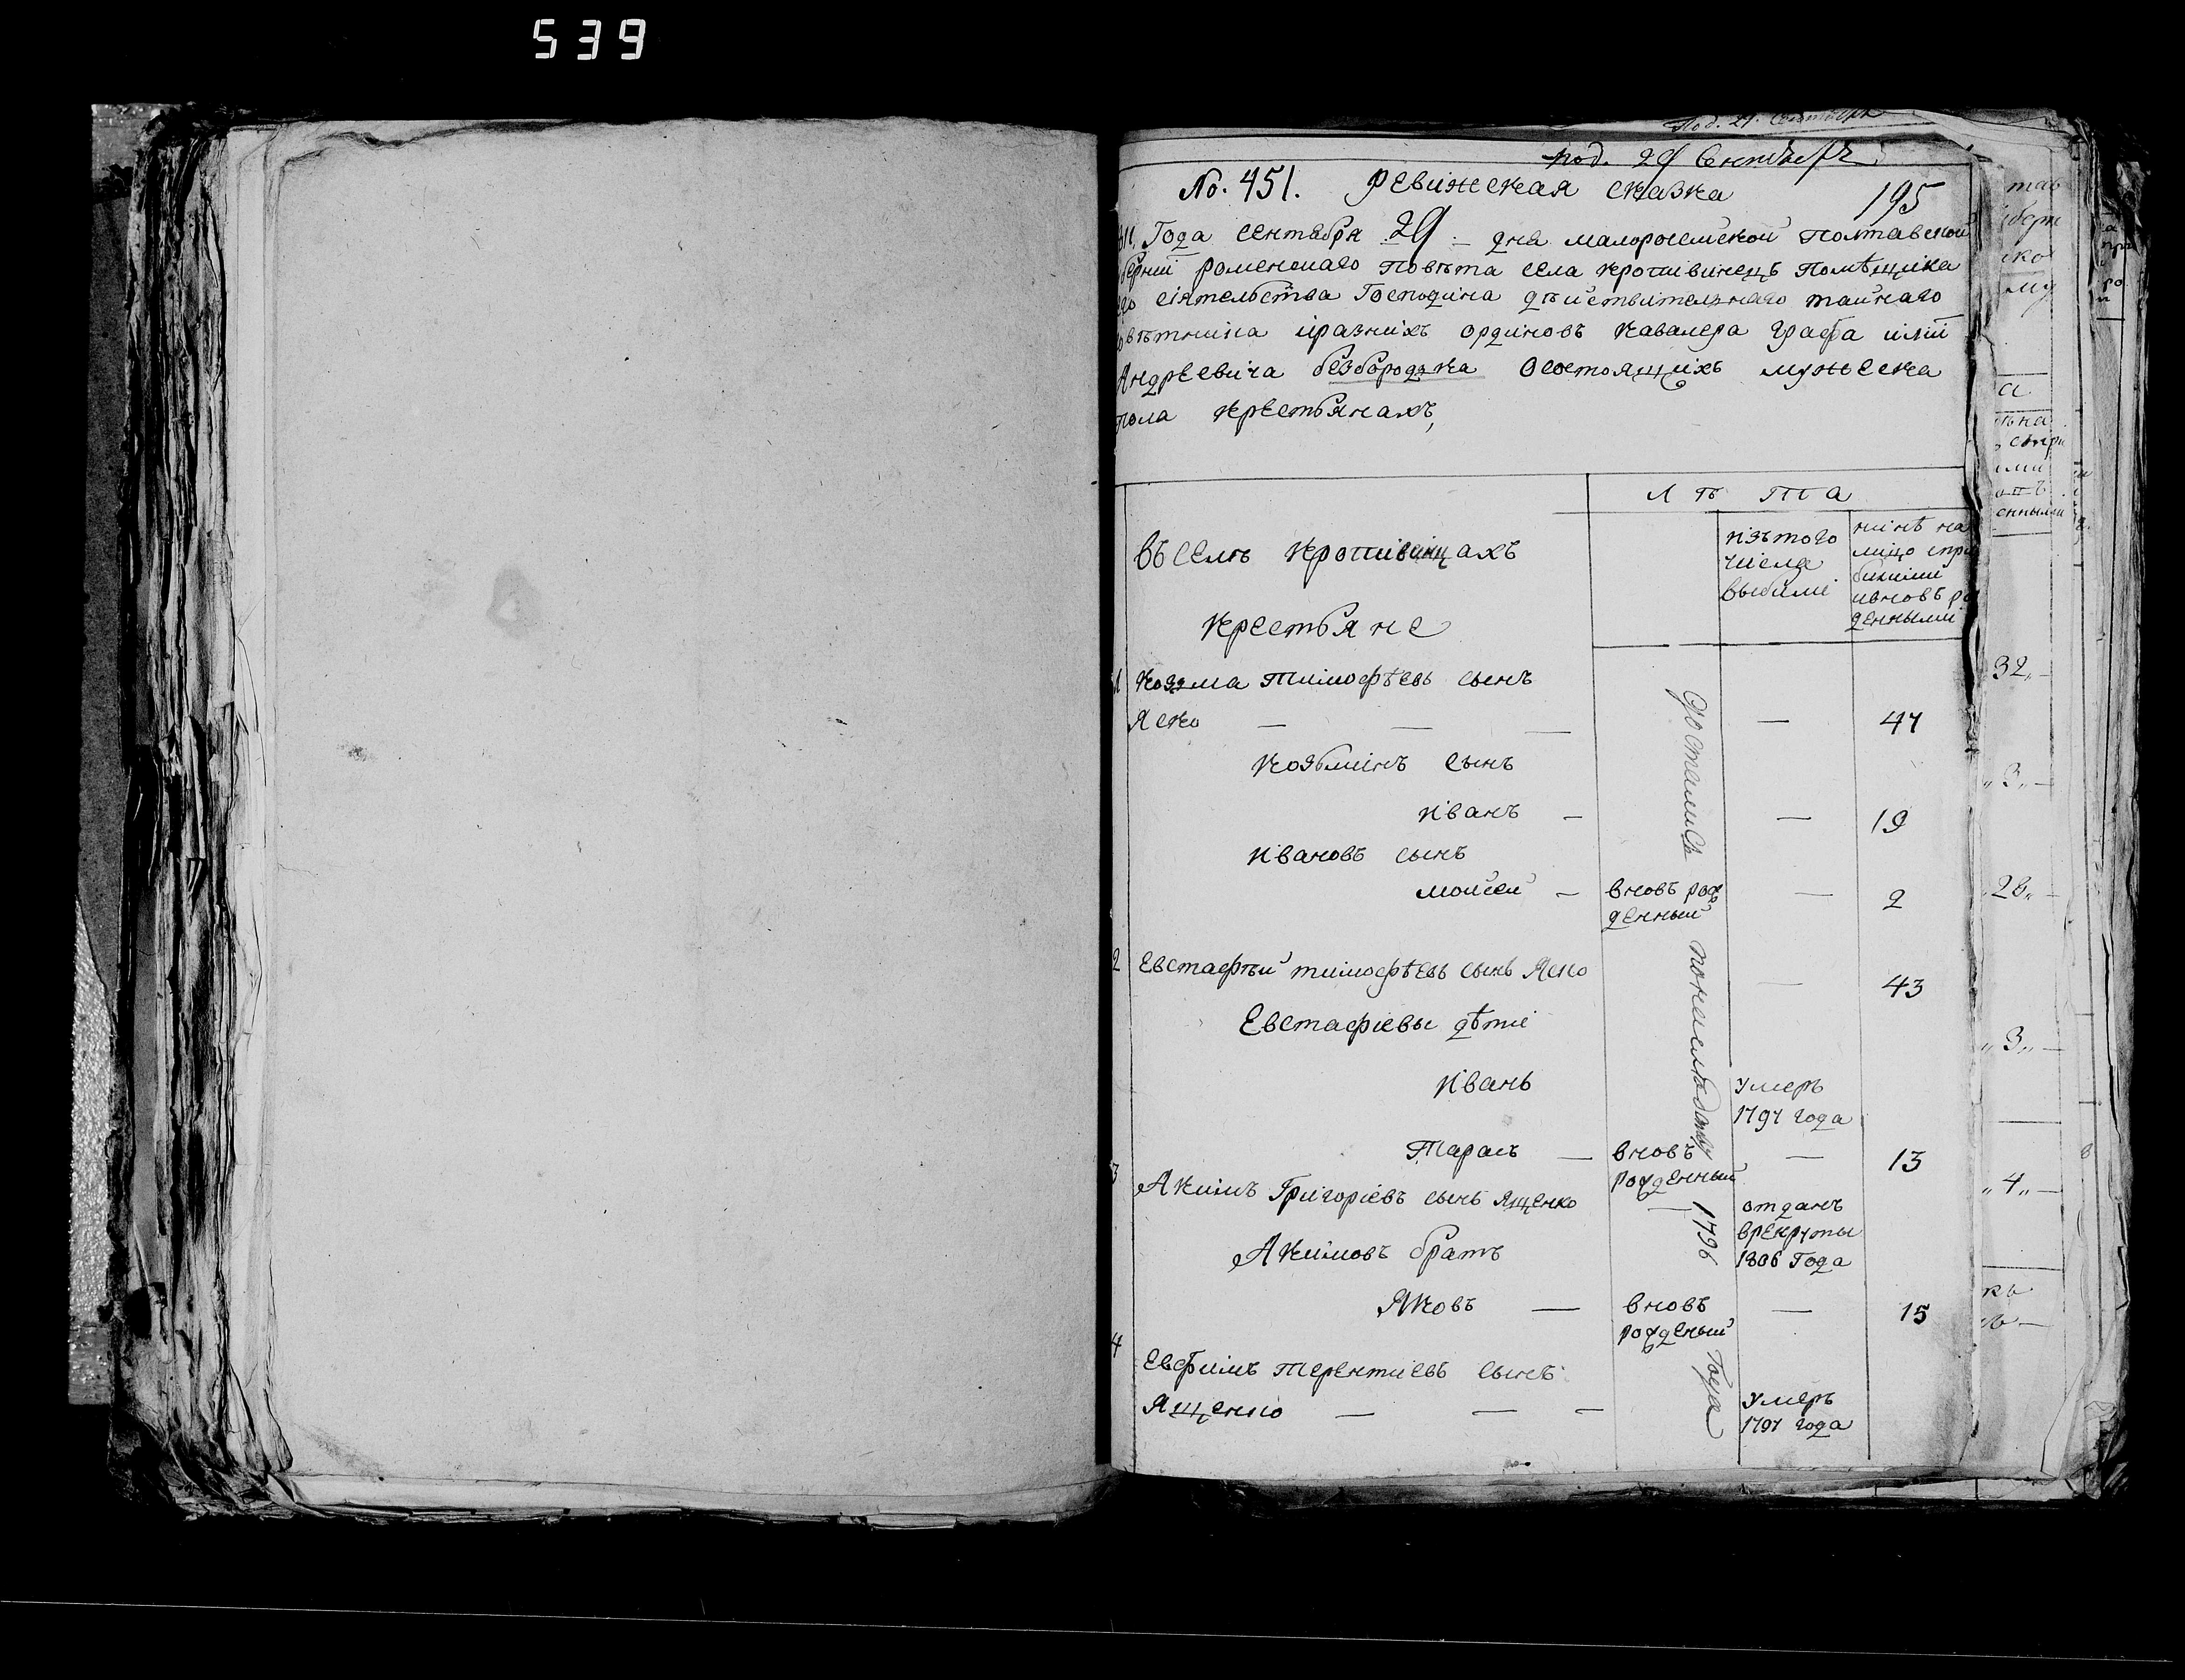 539
Под. 29. Сентября
под. 29 Сентября
No. 451. Ревижская сказка 195
Года сентября 29 – дня малоросийской полтавской
роменскаго повѣта села кропивинецъ помѣщика
его сіятельства Господина дѣйствительнаго тайнаго
совѣтника иразнихъ ординовъ кавалера графа илїи
Андреевича безбородька осостоящихъ мужеска
пола крестьянахъ,
Л ѣ та
въселѣ кропивинцахъ
крестьяне
изътого
числа
выбили
нинѣ на
лицо спри
билими
ивновъ ро
денными
1 козма тимофѣевъ сынъ
яско — — — — 47
козьминъ сынъ
иванъ — — 19
ивановъ сынъ
мойсей — вновь рож
денный — 2
2 Евстафѣй тимофѣевъ сынъ яско — 43
Евстафіевы дѣти
иванъ умеръ
1797 года
Тарасъ — вновь
рожденный — 13
3 Акимъ Григоріевъ сынъ ященко — отданъ
врекруты
1806 Года
Акимовъ братъ
яковъ — вновь
рожденый — 15
4 Евфимъ терентиевъ сынъ
ященко — — — умеръ
1797 года
достались
1796
года
32,,—
,,3,,—
,,3,,—
,,4,,—